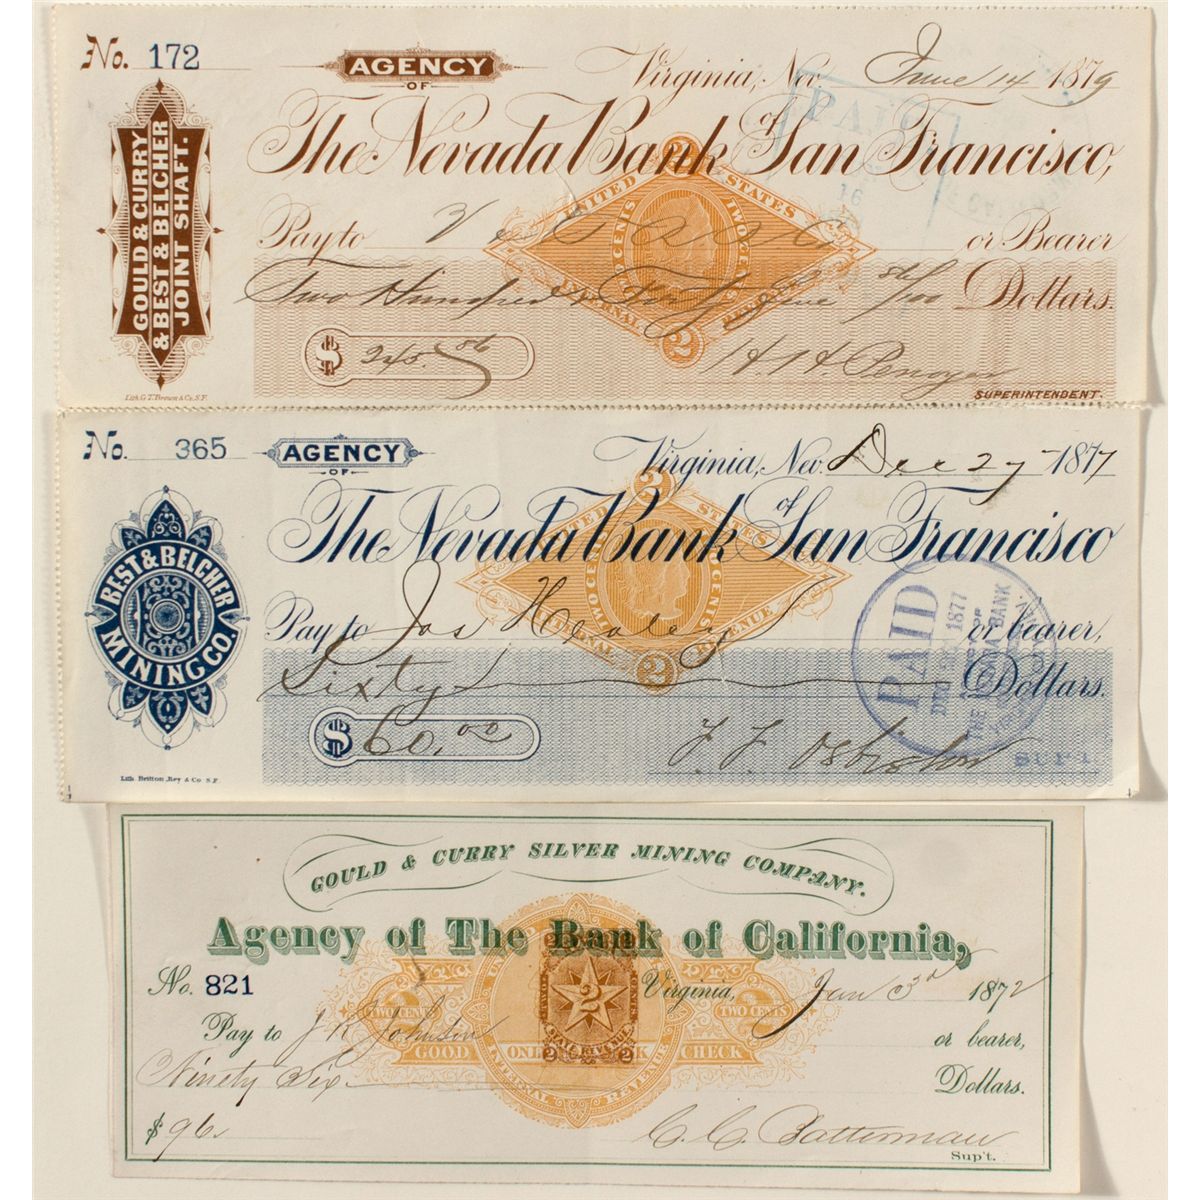 No. 172
AGENCY
OF
Virginia, Nev. June 14 1879
The Nevada Bank of San Francisco,
GOULD & CURRY
& BEST & BELCHER
JOINT SHAFT.
PAID
16
UNITED STATES
TWO CENTS
TWO CENTS
INTERNAL REVENUE
2
2
Pay to or Bearer
Two Hundred & Forty five 86/100 Dollars.
$ 245.86
H H Penoyer
SUPERINTENDENT.
Lith. G.T. Brown & Co. S.F.
No. 365
AGENCY
OF
Virginia, Nev. Dec 27 1877
The Nevada Bank of San Francisco
BEST & BELCHER
MINING CO.
UNITED STATES
TWO CENTS
TWO CENTS
INTERNAL REVENUE
2
2
Pay to Jas Healey or bearer,
Sixty Dollars.
$ 60.00
PAID
1877
THE NEVADA BANK
SUPT.
Lith. Britton, Rey & Co. S.F.
GOULD & CURRY SILVER MINING COMPANY.
Agency of The Bank of California,
No. 821 Virginia, Jan 3rd 1872
Pay to J R Johnson or bearer,
TWO CENTS
TWO CENTS
GOOD ONLY CHECK
2
INTERNAL REVENUE
Ninety Six Dollars.
$ 96.
C. C. Batterman
Sup't.